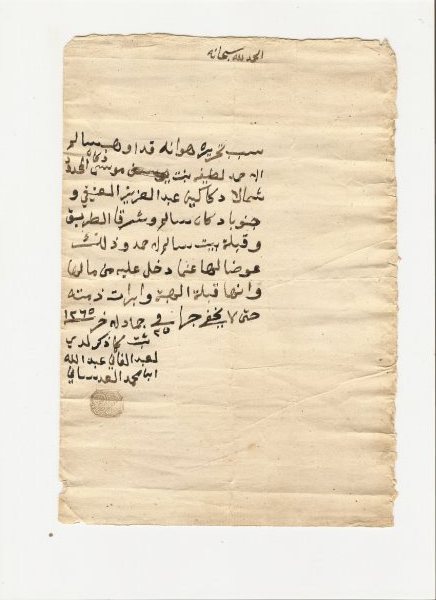 الحمد لله سبحانه
سبب تحريره هو انه قد اوهب سالم
ابن حمد لطيفه بنت موسى دكان المحدود
شمالا دكاكين عبد العزيز العتيقي و
جنوبا دكان سالم وشرقا الطريق
وقبلة بيت سالم ابن حمود وذلك
عوضا لها عما دخل عليه من مالها
وانها قبلة الهبة وابرات ذمته
حتى لا يخفى جرا في ٢٥ جماد اخر ١٢٦٥
ثبت كما ذكر لدي
العبد الفاني عبد الله
ابن محمد العدساني